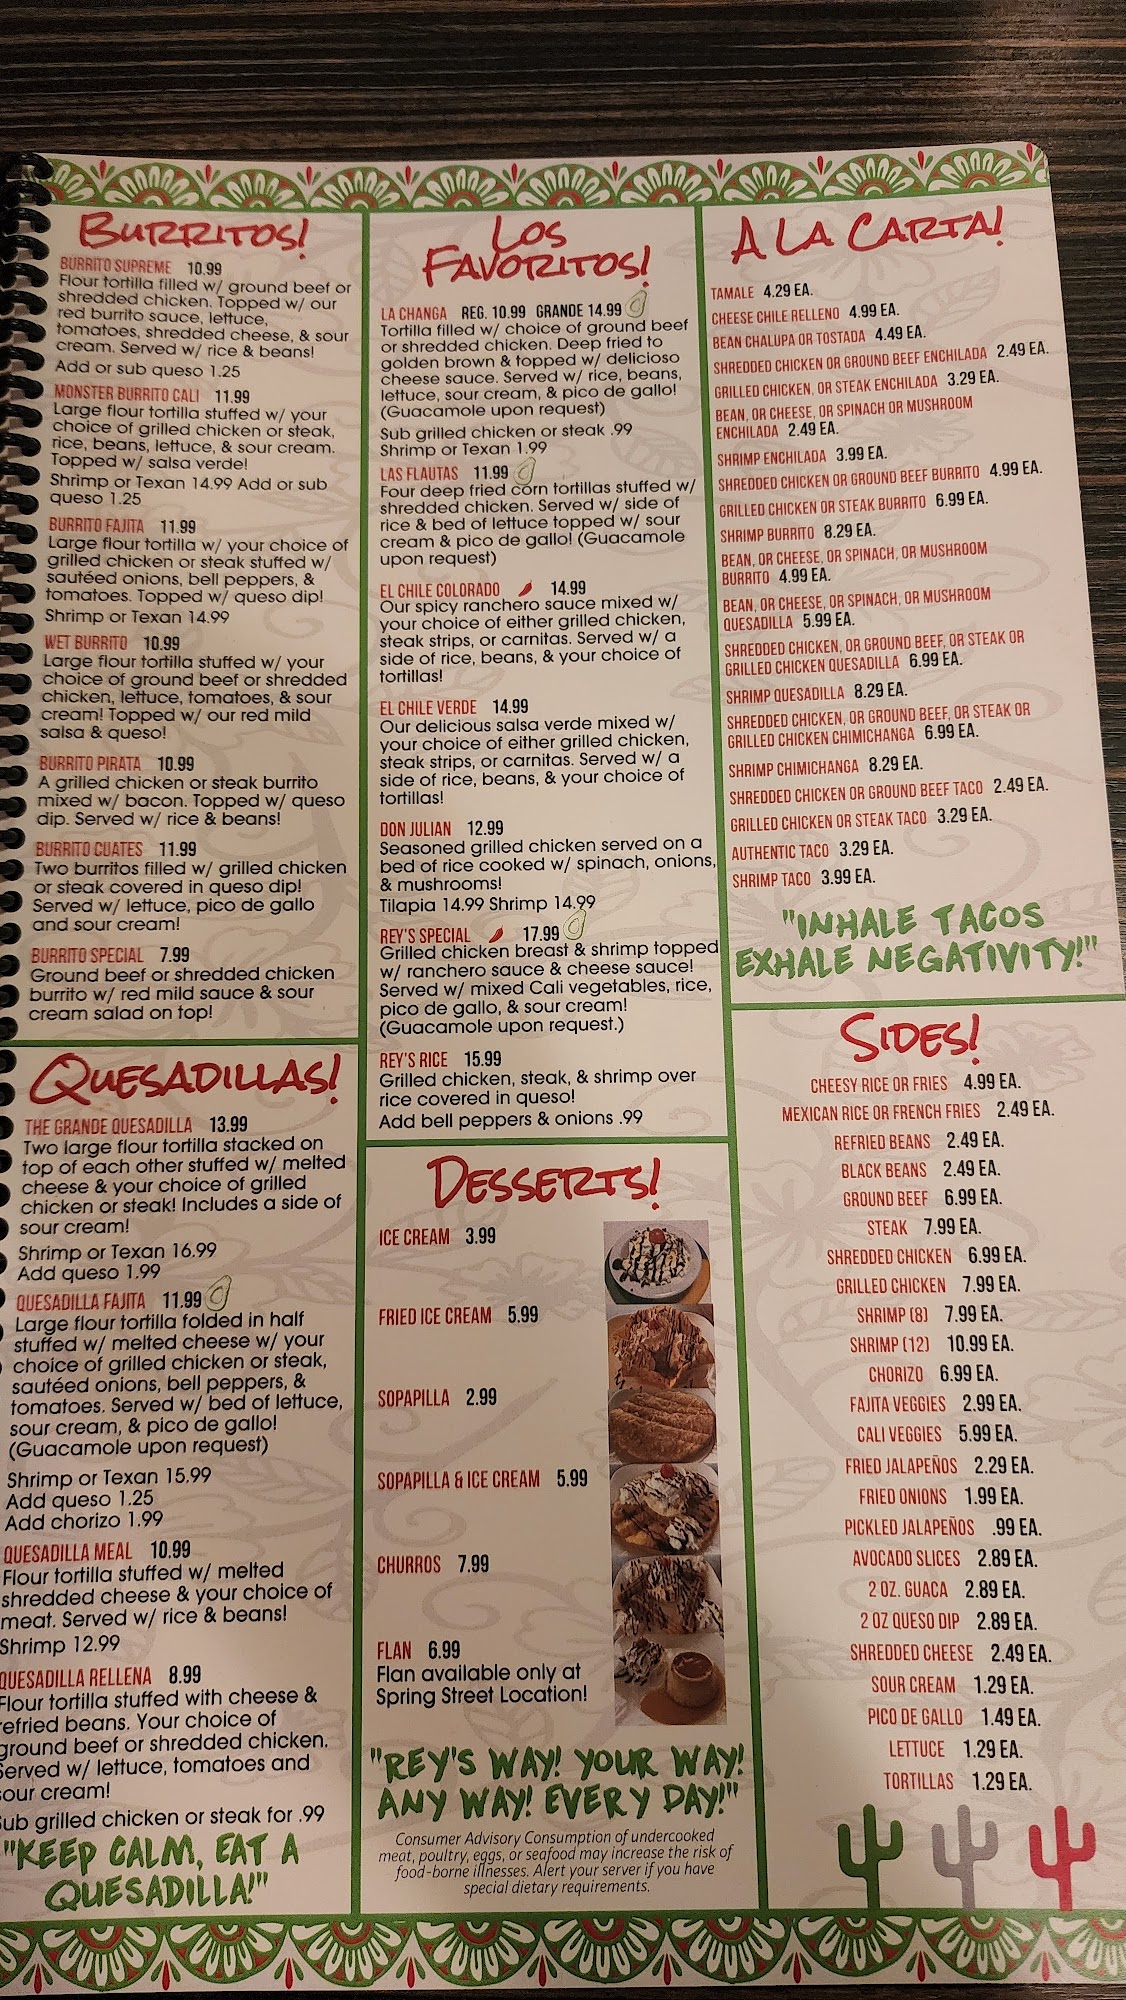 BURRITOS!
BURRITO SUPREME 10.99
Flour tortilla filled w/ ground beef or
shredded chicken. Topped w/ our
red burrito sauce, lettuce,
tomatoes, shredded cheese, & sour
cream. Served w/ rice & beans!
Add or sub queso 1.25
MONSTER BURRITO CALI 11.99
Large flour tortilla stuffed w/ your
choice of grilled chicken or steak,
rice, beans, lettuce, & sour cream.
Topped w/ salsa verde!
Shrimp or Texan 14.99 Add or sub
queso 1.25
BURRITO FAJITA 11.99
Large flour tortilla w/ your choice of
grilled chicken or steak stuffed w/
sautéed onions, bell peppers, &
tomatoes. Topped w/ queso dip!
Shrimp or Texan 14.99
WET BURRITO 10.99
Large flour tortilla stuffed w/ your
choice of ground beef or shredded
chicken, lettuce, tomatoes, & sour
cream! Topped w/ our red mild
salsa & queso!
BURRITO PIRATA 10.99
A grilled chicken or steak burrito
mixed w/ bacon. Topped w/ queso
dip. Served w/ rice & beans!
BURRITO CUATES 11.99
Two burritos filled w/ grilled chicken
or steak covered in queso dip!
Served w/ lettuce, pico de gallo
and sour cream!
BURRITO SPECIAL 7.99
Ground beef or shredded chicken
burrito w/ red mild sauce & sour
cream salad on top!
QUESADILLAS!
THE GRANDE QUESADILLA 13.99
Two large flour tortilla stacked on
top of each other stuffed w/ melted
cheese & your choice of grilled
chicken or steak! Includes a side of
sour cream!
Shrimp or Texan 16.99
Add queso 1.99
QUESADILLA FAJITA 11.99
Large flour tortilla folded in half
stuffed w/ melted cheese w/ your
choice of grilled chicken or steak,
sautéed onions, bell peppers, &
tomatoes. Served w/ bed of lettuce,
sour cream, & pico de gallo!
(Guacamole upon request)
Shrimp or Texan 15.99
Add queso 1.25
Add chorizo 1.99
QUESADILLA MEAL 10.99
Flour tortilla stuffed w/ melted
shredded cheese & your choice of
meat. Served w/ rice & beans!
Shrimp 12.99
QUESADILLA RELLENA 8.99
Flour tortilla stuffed with cheese &
refried beans. Your choice of
ground beef or shredded chicken.
Served w/ lettuce, tomatoes and
sour cream!
Sub grilled chicken or steak for .99
"KEEP CALM, EAT A
QUESADILLA!"
LOS
FAVORITOS!
LA CHANGA REG. 10.99 GRANDE 14.99
Tortilla filled w/ choice of ground beef
or shredded chicken. Deep fried to
golden brown & topped w/ delicioso
cheese sauce. Served w/ rice, beans,
lettuce, sour cream, & pico de gallo!
(Guacamole upon request)
Sub grilled chicken or steak .99
Shrimp or Texan 1.99
LAS FLAUTAS 11.99
Four deep fried corn tortillas stuffed w/
shredded chicken. Served w/ side of
rice & bed of lettuce topped w/ sour
cream & pico de gallo! (Guacamole
upon request)
EL CHILE COLORADO 14.99
Our spicy ranchero sauce mixed w/
your choice of either grilled chicken,
steak strips, or carnitas. Served w/ a
side of rice, beans, & your choice of
tortillas!
EL CHILE VERDE 14.99
Our delicious salsa verde mixed w/
your choice of either grilled chicken,
steak strips, or carnitas. Served w/ a
side of rice, beans, & your choice of
tortillas!
DON JULIAN 12.99
Seasoned grilled chicken served on a
bed of rice cooked w/ spinach, onions,
& mushrooms!
Tilapia 14.99 Shrimp 14.99
REY'S SPECIAL 17.99
Grilled chicken breast & shrimp topped
w/ ranchero sauce & cheese sauce!
Served w/ mixed Cali vegetables, rice,
pico de gallo, & sour cream!
(Guacamole upon request.)
REY'S RICE 15.99
Grilled chicken, steak, & shrimp over
rice covered in queso!
Add bell peppers & onions .99
DESSERTS!
ICE CREAM 3.99
FRIED ICE CREAM 5.99
SOPAPILLA 2.99
SOPAPILLA & ICE CREAM 5.99
CHURROS 7.99
FLAN 6.99
Flan available only at
Spring Street Location!
"REY'S WAY! YOUR WAY!
ANY WAY! EVERY DAY!"
Consumer Advisory Consumption of undercooked
meat, poultry, eggs, or seafood may increase the risk of
food-borne illnesses. Alert your server if you have
special dietary requirements.
A LA CARTA!
TAMALE 4.29 EA.
CHEESE CHILE RELLENO 4.99 EA.
BEAN CHALUPA OR TOSTADA 4.49 EA.
SHREDDED CHICKEN OR GROUND BEEF ENCHILADA 2.49 EA.
GRILLED CHICKEN, OR STEAK ENCHILADA 3.29 EA.
BEAN, OR CHEESE, OR SPINACH OR MUSHROOM
ENCHILADA 2.49 EA.
SHRIMP ENCHILADA 3.99 EA.
SHREDDED CHICKEN OR GROUND BEEF BURRITO 4.99 EA.
GRILLED CHICKEN OR STEAK BURRITO 6.99 EA.
SHRIMP BURRITO 8.29 EA.
BEAN, OR CHEESE, OR SPINACH, OR MUSHROOM
BURRITO 4.99 EA.
BEAN, OR CHEESE, OR SPINACH, OR MUSHROOM
QUESADILLA 5.99 EA.
SHREDDED CHICKEN, OR GROUND BEEF, OR STEAK OR
GRILLED CHICKEN QUESADILLA 6.99 EA.
SHRIMP QUESADILLA 8.29 EA.
SHREDDED CHICKEN, OR GROUND BEEF, OR STEAK OR
GRILLED CHICKEN CHIMICHANGA 6.99 EA.
SHRIMP CHIMICHANGA 8.29 EA.
SHREDDED CHICKEN OR GROUND BEEF TACO 2.49 EA.
GRILLED CHICKEN OR STEAK TACO 3.29 EA.
AUTHENTIC TACO 3.29 EA.
SHRIMP TACO 3.99 EA.
"INHALE TACOS
EXHALE NEGATIVITY!"
SIDES!
CHEESY RICE OR FRIES 4.99 EA.
MEXICAN RICE OR FRENCH FRIES 2.49 EA.
REFRIED BEANS 2.49 EA.
BLACK BEANS 2.49 EA.
GROUND BEEF 6.99 EA.
STEAK 7.99 EA.
SHREDDED CHICKEN 6.99 EA.
GRILLED CHICKEN 7.99 EA.
SHRIMP (8) 7.99 EA.
SHRIMP (12) 10.99 EA.
CHORIZO 6.99 EA.
FAJITA VEGGIES 2.99 EA.
CALI VEGGIES 5.99 EA.
FRIED JALAPEÑOS 2.29 EA.
FRIED ONIONS 1.99 EA.
PICKLED JALAPEÑOS .99 EA.
AVOCADO SLICES 2.89 EA.
2 OZ. GUACA 2.89 EA.
2 OZ QUESO DIP 2.89 EA.
SHREDDED CHEESE 2.49 EA.
SOUR CREAM 1.29 EA.
PICO DE GALLO 1.49 EA.
LETTUCE 1.29 EA.
TORTILLAS 1.29 EA.